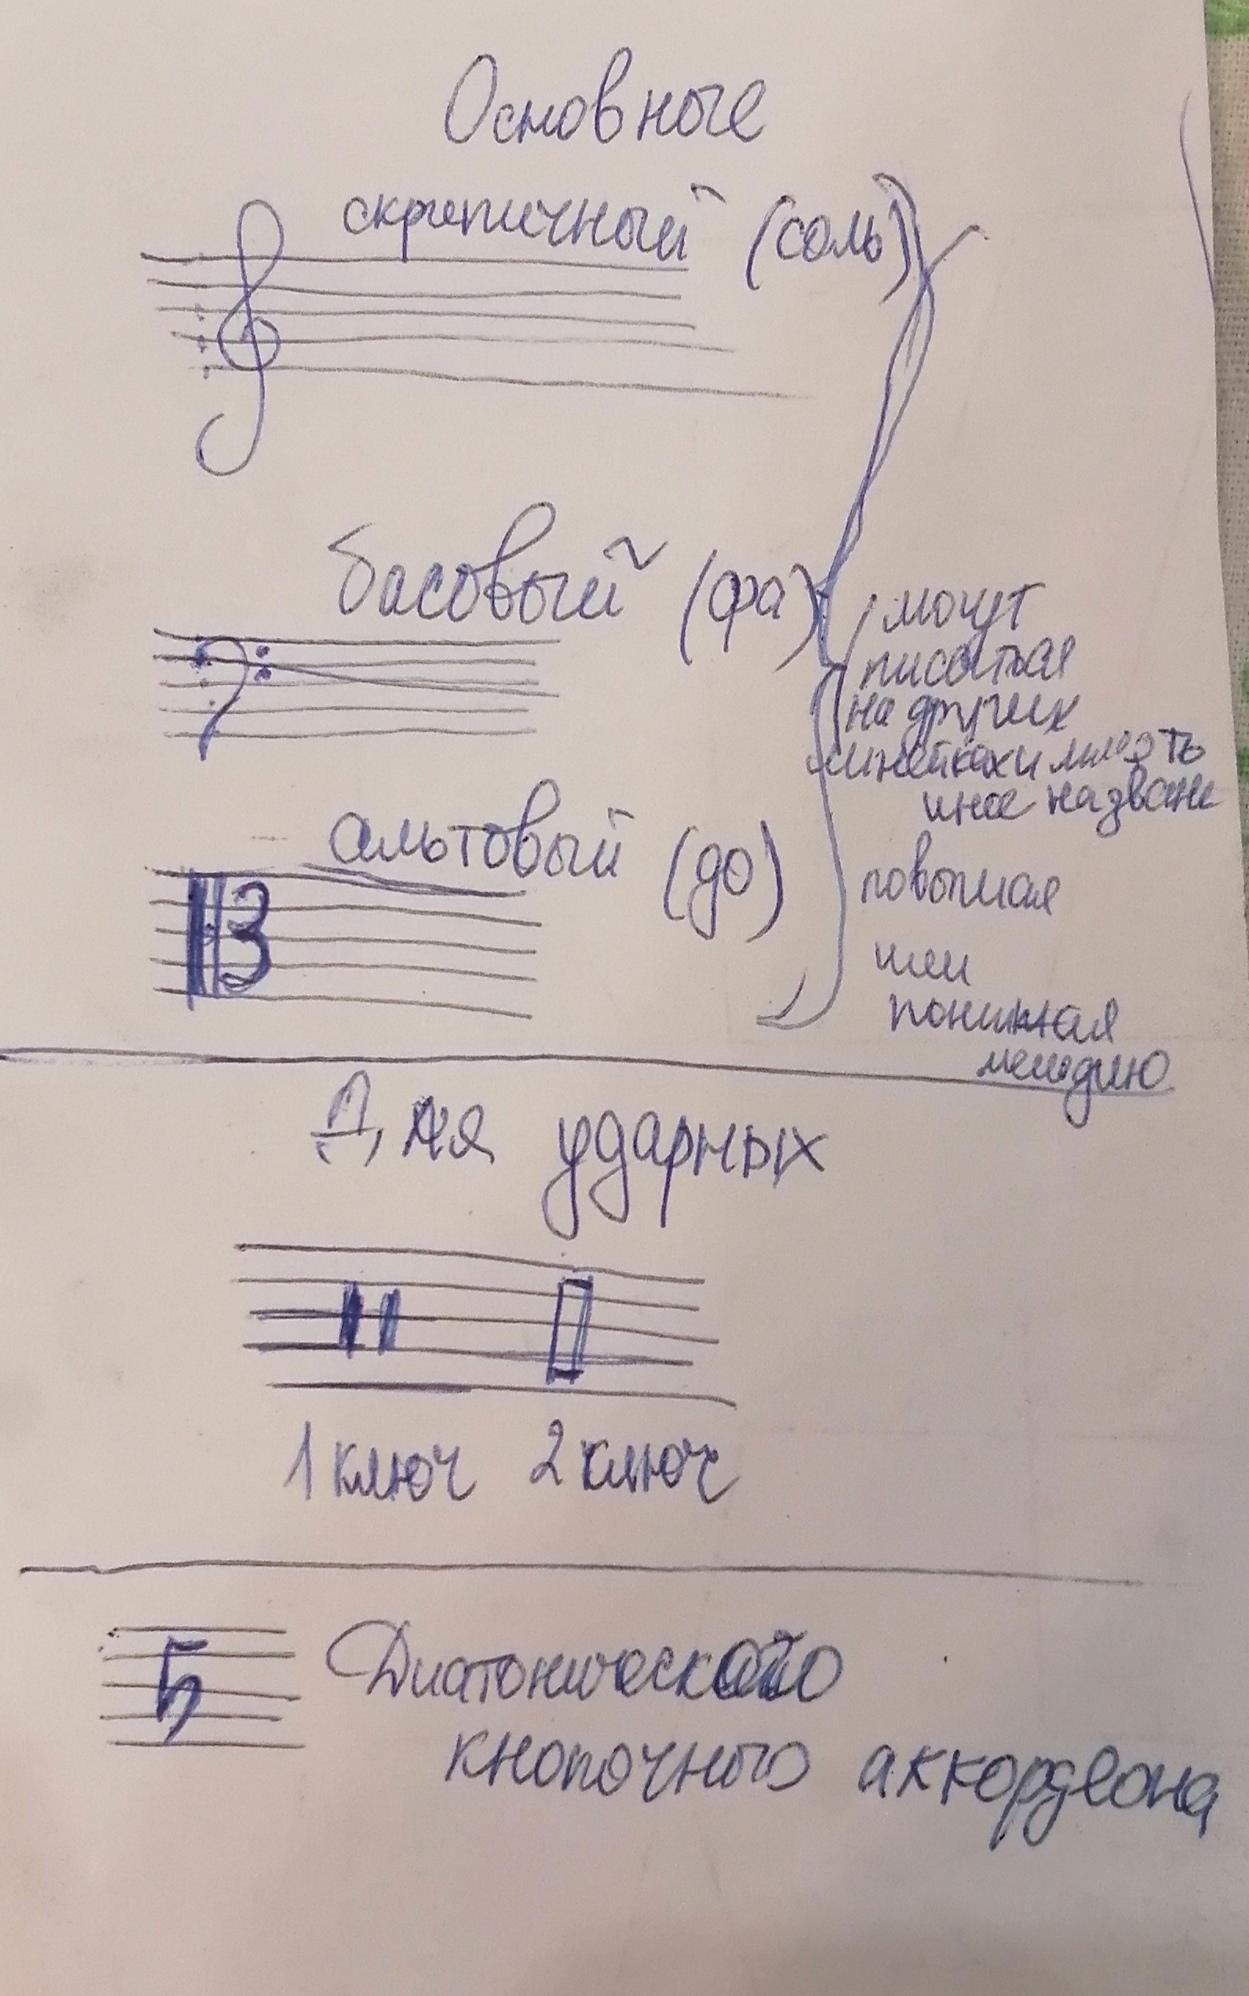 Основные
скрипичный (соль)
басовый (фа)
могут
писаться
на других
линейках и иметь
иное назване
альтовый (до)
повышая
или
понижая
мелодию
Для ударных
1 ключ 2 ключ
Диатонического
кнопочного аккордеона